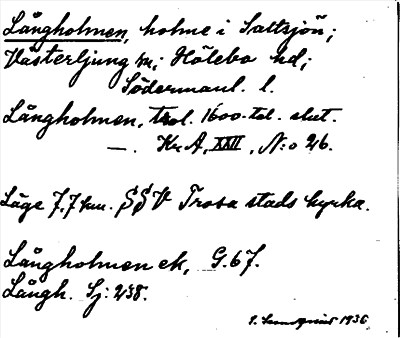 Långholmen, holme i Saltsjön;
Västerljung sn; Hölebo hd;
Södermanl. l.
Långholmen, trol. 1600-tal. slut.
—. Kr. A, XXII, N:o 26.
Läge 7,7 km. SSV Trosa stads kyrka.
Långholmen ek, G.67.
Långh. Sj: 238.
1936